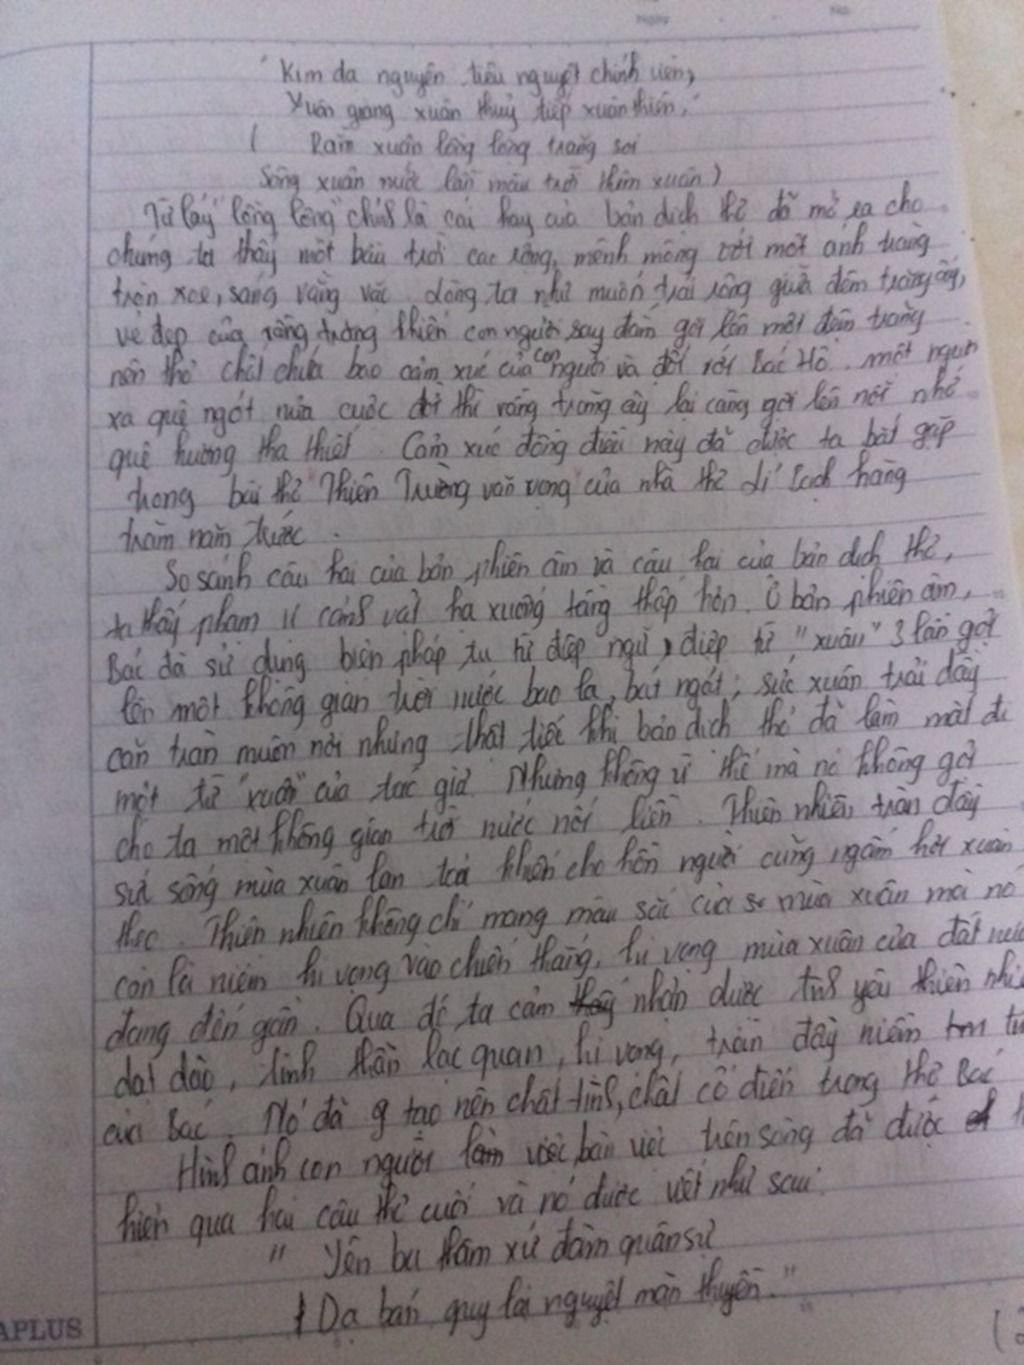 "Kim dạ nguyên tiêu nguyệt chính viên,
Xuân giang xuân thuỷ tiếp xuân thiên,"
( Rằm xuân lồng lộng trăng soi
Sông xuân nước lẫn màu trời thêm xuân)
Từ láy "lồng lộng" chính là cái hay của bản dịch thơ đã mở ra cho
chúng ta thấy một bầu trời cao rộng, mênh mông với một ánh trăng
tròn xoe, sáng vằng vặc. dòng ta như muốn trải rộng giữa đêm trăng ấy,
vẻ đẹp của vầng trăng khiến con người say đắm gợi lên một đêm trăng
nên thơ chất chứa bao cảm xúc của con người và đối với Bác Hồ. một người
xa quê ngót nửa cuộc đời thì vầng trăng ấy lại càng gợi lên nỗi nhớ
quê hương tha thiết. Cảm xúc đồng điệu này đã được ta bắt gặp
trong bài thơ "Thiên Trường vãn vọng" của nhà thơ hàng
trăm năm trước.
So sánh câu hai của bản phiên âm và câu hai của bản dịch thơ,
ta thấy phạm vi cảnh vật hạ xuống tầng thấp hơn. Ở bản phiên âm,
Bác đã sử dụng biện pháp tu từ điệp ngữ, điệp từ "xuân" 3 lần gợi
lên một không gian trời nước bao la, bát ngát; sức xuân trải đầy
căn tràn muôn nơi nhưng thật tiếc khi bản dịch thơ đã làm mất đi
một từ "xuân" của tác giả. Nhưng không vì thế mà nó không gợi
cho ta một không gian trời nước nối liền. Thiên nhiên, tràn đầy
sức sống mùa xuân lan toả khiến cho hồn người cũng ngấm hơi xuân
theo. Thiên nhiên không chỉ mang màu sắc của mùa xuân mà nó
còn là niềm hi vọng vào chiến thắng, hi vọng mùa xuân của đất nước
đang đến gần. Qua đó, ta cảm nhận được tình yêu thiên nhi
dạt dào, tinh thần lạc quan, hi vọng, tràn đầy niềm tin
của Bác. Nó đã tạo nên chất tình, chất cổ điển trong thơ Bác
Hình ảnh con người làm việc, bàn việc trên sông đã được
hiện qua hai câu thơ cuối và nó được viết như sau:
" Yên ba thâm xứ đàm quân sự
Dạ bán quy lai nguyệt mãn thuyền."
APLUS